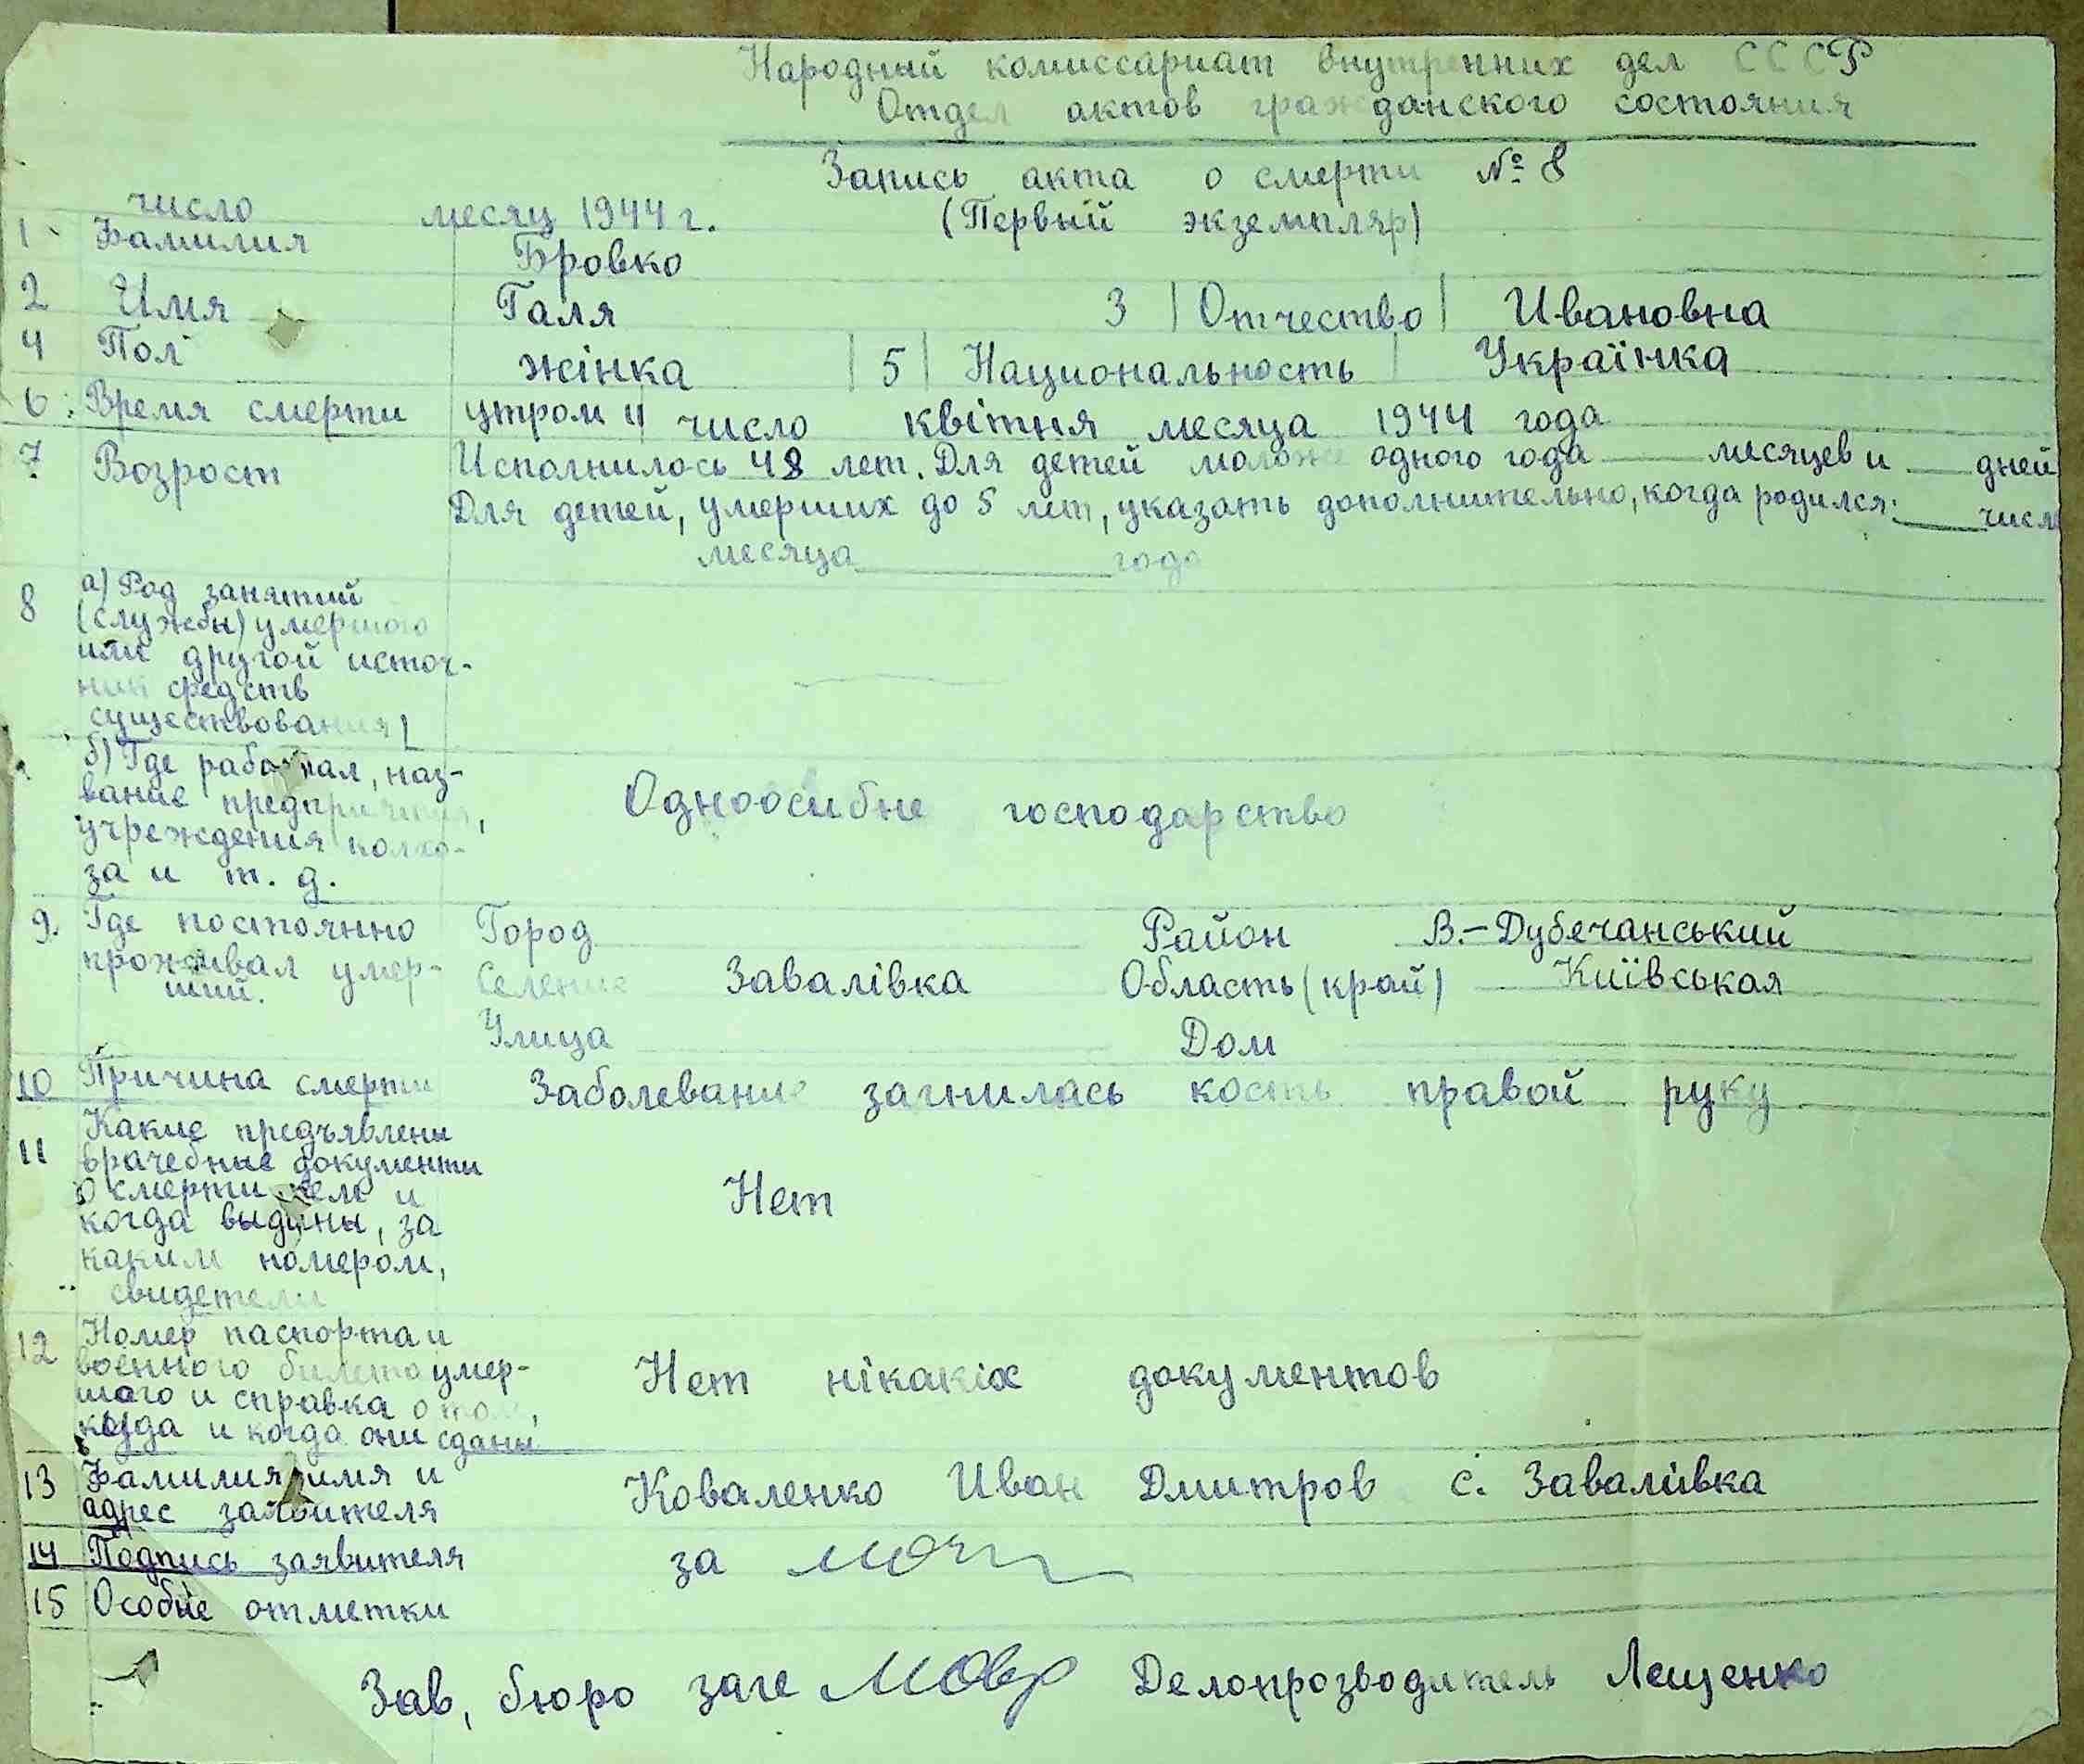 Народный комиссариат внутренних дел СССР
Отдел актов гражданского состояния
Запись акта о смерти № 8
число месяц 1944 г. (Первый экземпляр)
1 Фамилия Бровко
2 Имя Галя 3 Отчество Ивановна
4 Пол жінка 5 Национальность Українка
6 Время смерти утром 4 число квітня месяца 1944 года
7 Возрост Исполнилось 48 лет. Для детей моложе одного года месяцев и дней
Для детей, умерших до 5 лет, указать дополнительно, когда родился: число
месяца года
8 а) Род занятий
(службы) умершого
или другой источ-
ник средств
существования)
б) Где работал, наз-
вание предприятия,
учреждения колхо-
за и т. д.
Одноосибне господарство
9. Где постоянно
проживал умер-
ший.
Город Район В.-Дубечанський
Селение Завалівка Область (край) Київськая
Улица Дом
10 Причина смерти Заболевание загнилась кость правой руку
11 Какие предъявлены
врачебные документи
о смерти кем и
когда выданы, за
каким номером,
свидетели
Нет
12 Номер паспорта и
военного билета умер-
шого и справка о том,
куда и когда они сданы
Нет нікакіх документов
13 Фамилия имя и
адрес заявителя
Коваленко Иван Дмитров с. Завалівка
14 Подпись заявителя за
15 Особые отметки
Зав, бюро загс Делопрозводитель Лещенко